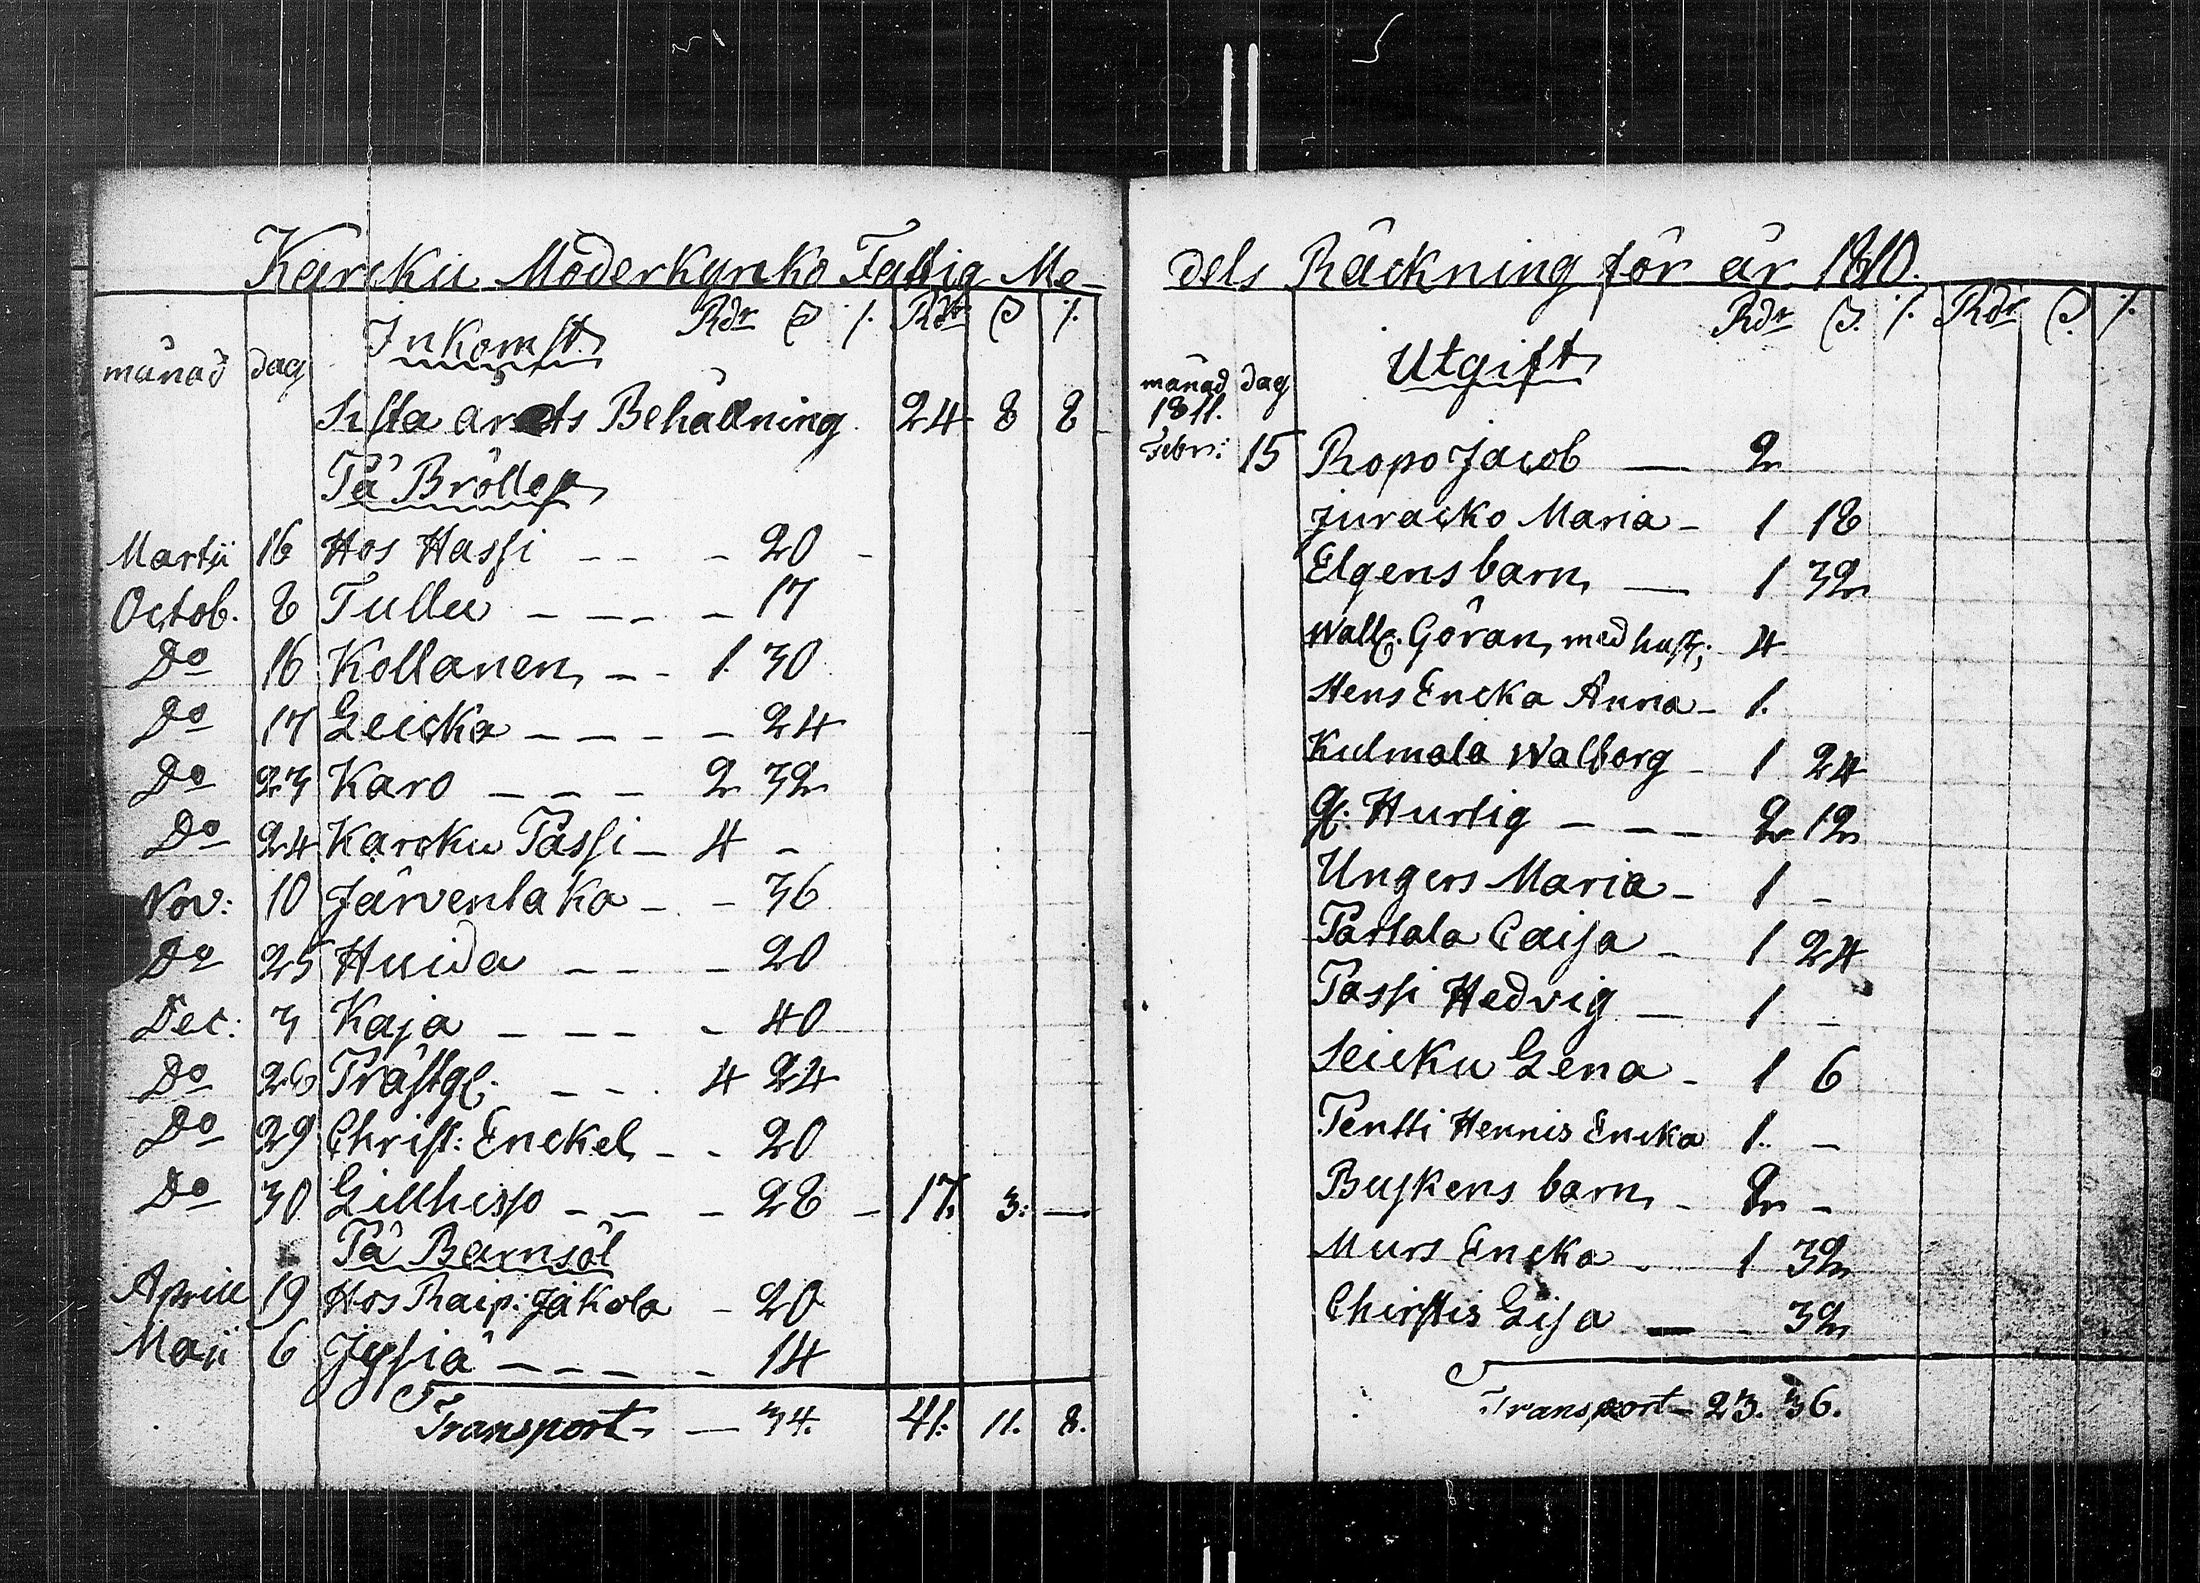 Karcku Moderkyrko Fattig Me-
månad dag Inkomst Rdr ß /. Rdr ß /.
Sista årets Behållning 24 8 8
På Bröllop
Martii 16 Hos Hassi - - - 20 -
Octob. 8 Tullu - - - - 17
Do 16 Kollanen - - 1. 30
Do 17 Leicka - - - - 24
Do 23 Karo - - - 2 32
Do 24 Karcku Passi - 4 -
Nov: 10 Järventaka - - 36
Do 25 Huida - - - 20
Dec: 3 Kaja - - - - 40
Do 26 Prästg: - - . 4 24
Do 29 Christ: Enckel - - 20
Do 30 Lillhisso - - - 28 - 17. 3: -
På Barnsöl
Aprill 19 Hos Raip: Jakola - 20
Maii 6 Jysiä - - - - - 14
Transport - - 34. 41: 11. 8.
dels Räckning för år 1810.
månad dag Utgift Rdr ß. /. Rdr ß /.
1811.
Febr: 15 Ropo Jacob - 2
Juracko Maria - 1 18
Elgens barn - 1 32
Wallg. Göran med hust; 4
Hens Encka Anna - 1.
Kulmala Walborg - 1 24
G: Hurtig - - - 2 12
Ungers Maria - 1 -
Partala Caisa - 1 24
Passi Hedvig - 1 -
Seicku Lena - 1 6
Pentti Hennis Encka 1. -
Buskens barn - 2 -
Murs Encka - 1 32
Chirstis Lisa - - 32
Transport - 23. 36.